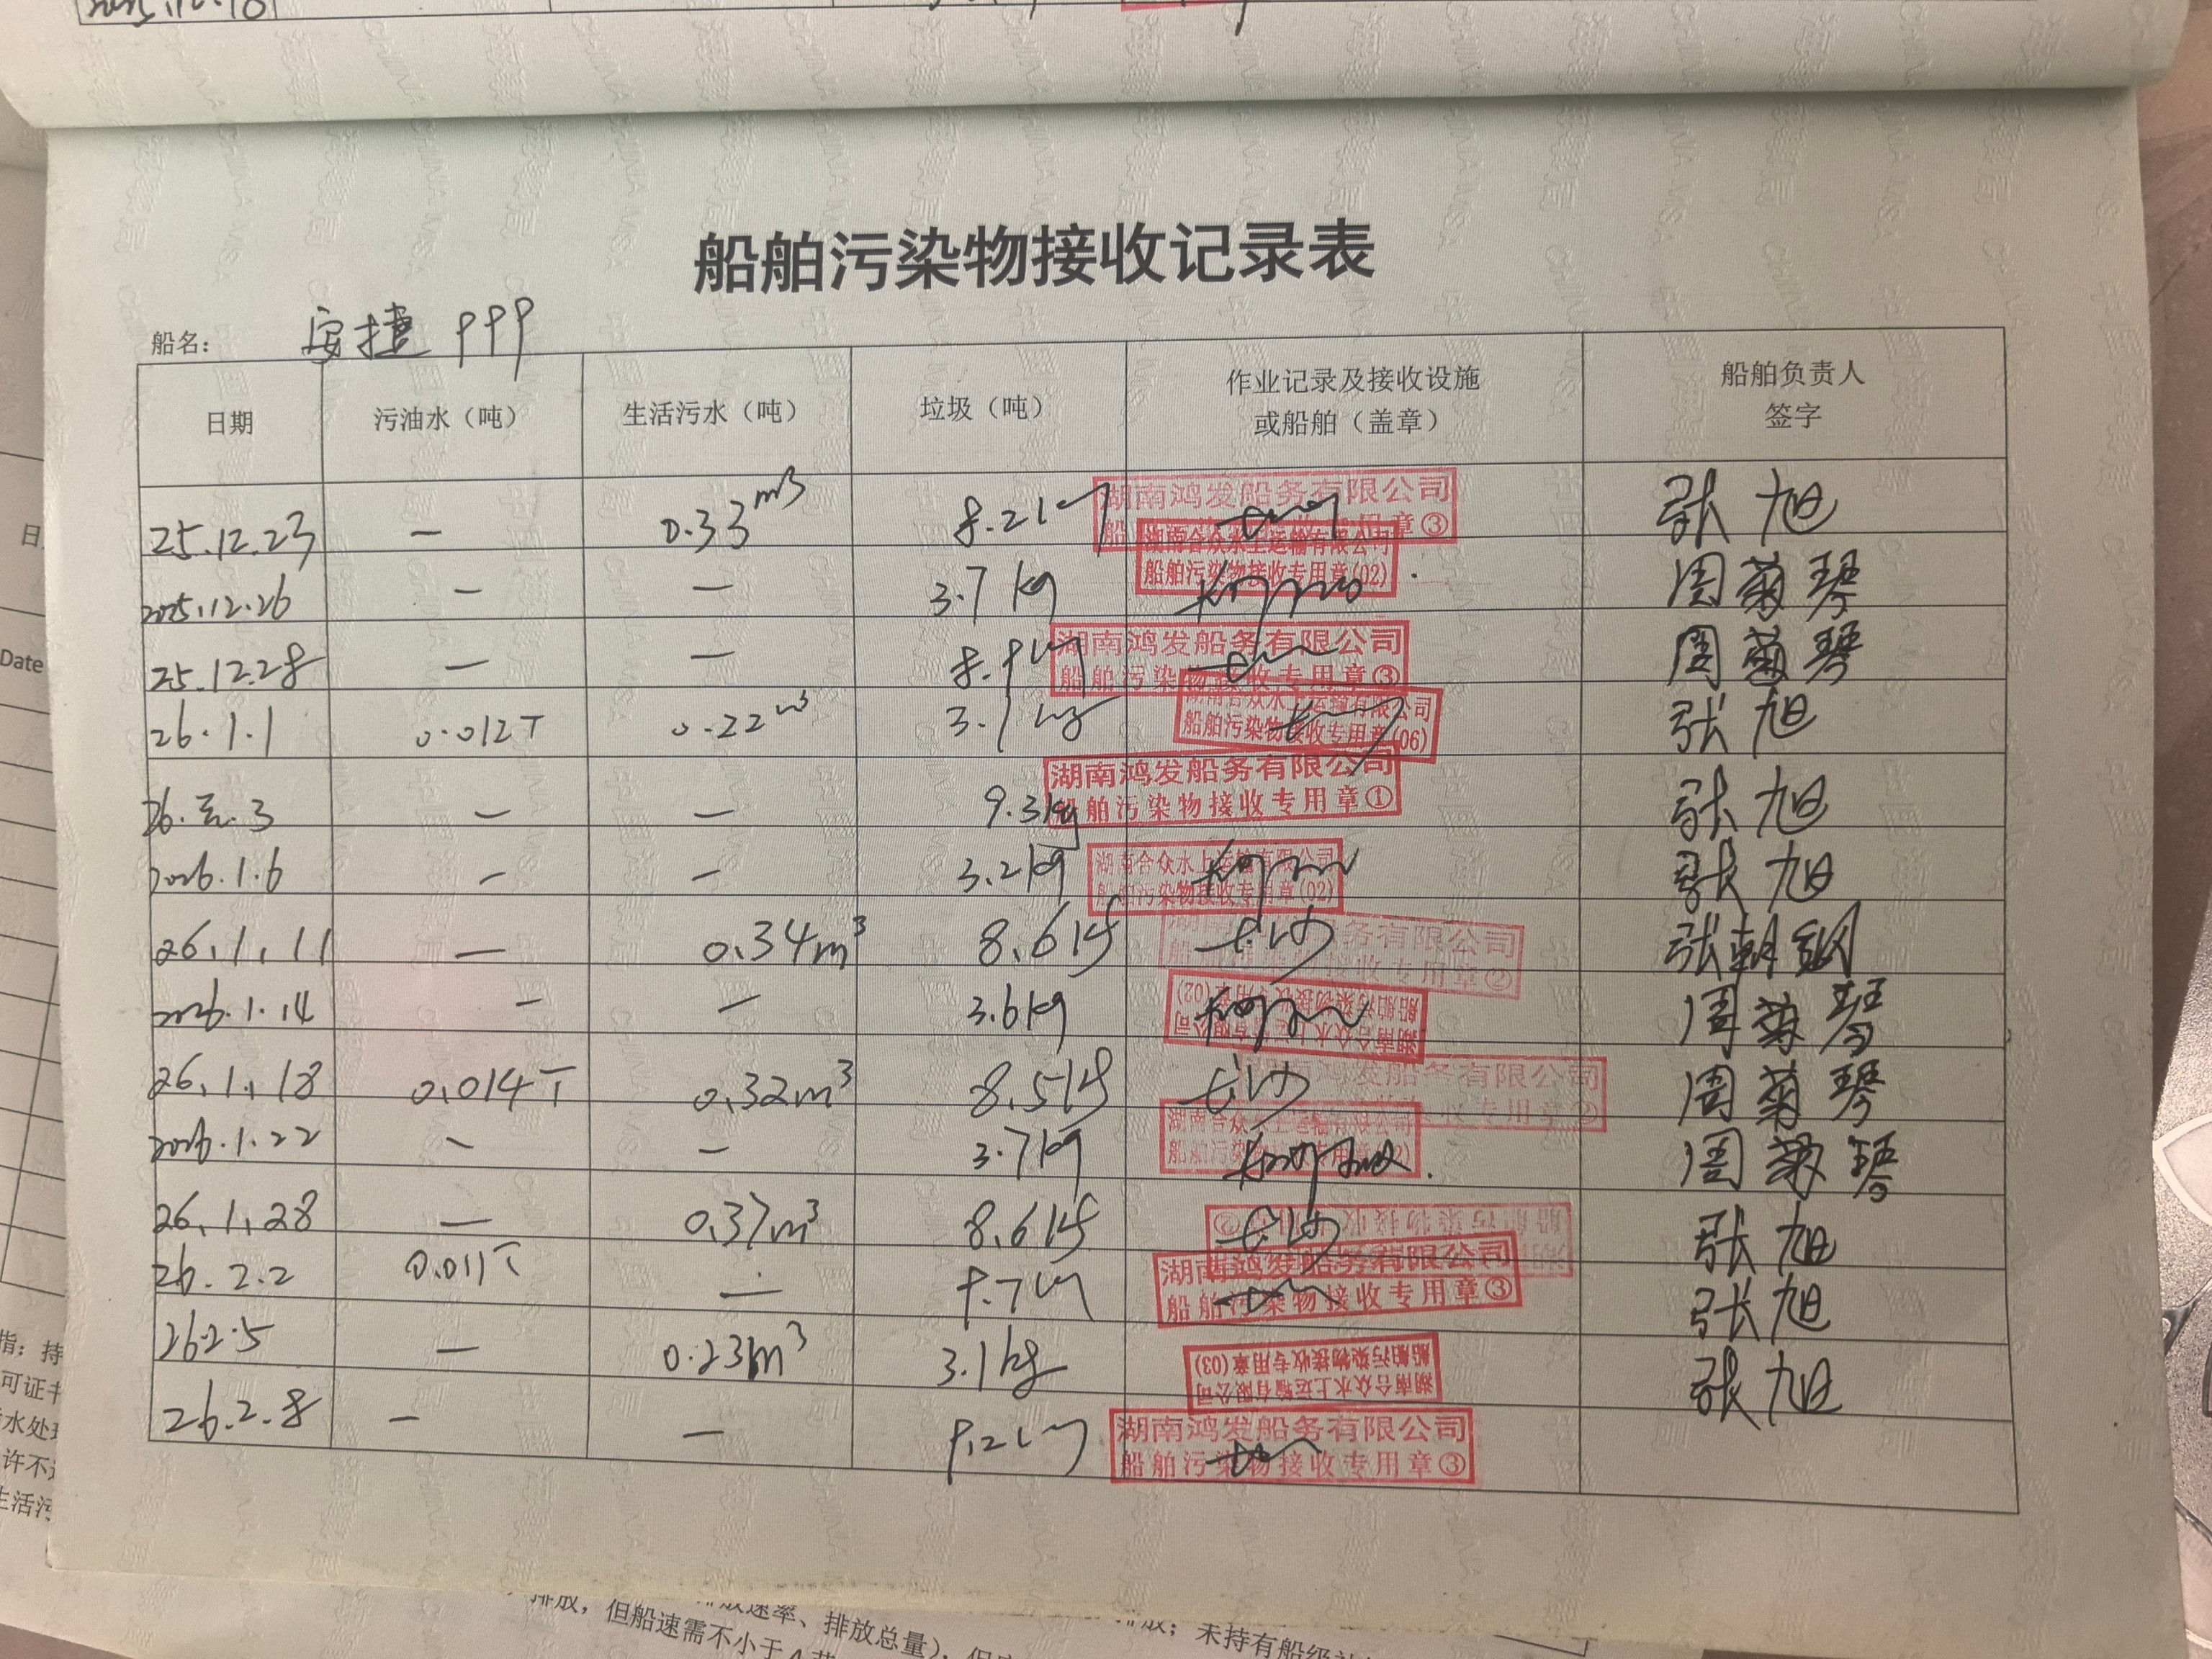 船舶污染物接收记录表
船名： 安捷 999
日期 污油水（吨） 生活污水（吨） 垃圾（吨） 作业记录及接收设施或船舶（盖章） 船舶负责人签字
25.12.23 — 0.33m3 8.2kg 湖南鸿发船务有限公司 船 用章③ 张旭
2025.12.26 — — 3.7kg 湖南合众水上运输有限公司 船舶污染物接收专用章(02) 周菊琴
25.12.28 — — 8.9kg 湖南鸿发船务有限公司 船舶污染物接收专用章③ 周菊琴
26.1.1 0.012T 0.22m3 3.1kg 湖南合众水上运输有限公司 船舶污染物接收专用章(06) 张旭
26.元.3 — — 9.3kg 湖南鸿发船务有限公司 船舶污染物接收专用章① 张旭
2026.1.6 — — 3.2kg 湖南合众水上运输有限公司 船舶污染物接收专用章(02) 张旭
26.1.11 — 0.34m3 8.6kg 长沙 务有限公司 接收专用章② 张朝钢
2026.1.14 — — 3.6kg 湖南合众水上运输有限公司 船舶污染物接收专用章(02) 周菊琴
26.1.18 0.014T 0.32m3 8.5kg 长沙 鸿发船务有限公司 收专用章② 周菊琴
2026.1.22 — — 3.7kg 湖南合众水上运输有限公司 船舶污染物接收专用章 周菊琴
26.1.28 — 0.37m3 8.6kg 长沙 船舶污染物接收 ② 张旭
26.2.2 0.011T — 9.7kg 湖南鸿发船务有限公司 船舶污染物接收专用章③ 张旭
26.2.5 — 0.23m3 3.1kg 湖南合众水上运输有限公司 船舶污染物接收专用章(03) 张旭
26.2.8 — — 9.2kg 湖南鸿发船务有限公司 船舶污染物接收专用章③
Date
指：持
可证书
许不
生活污
排放速率、排放总量），但
排放，但船速需不小于4节
排放；未持有船级